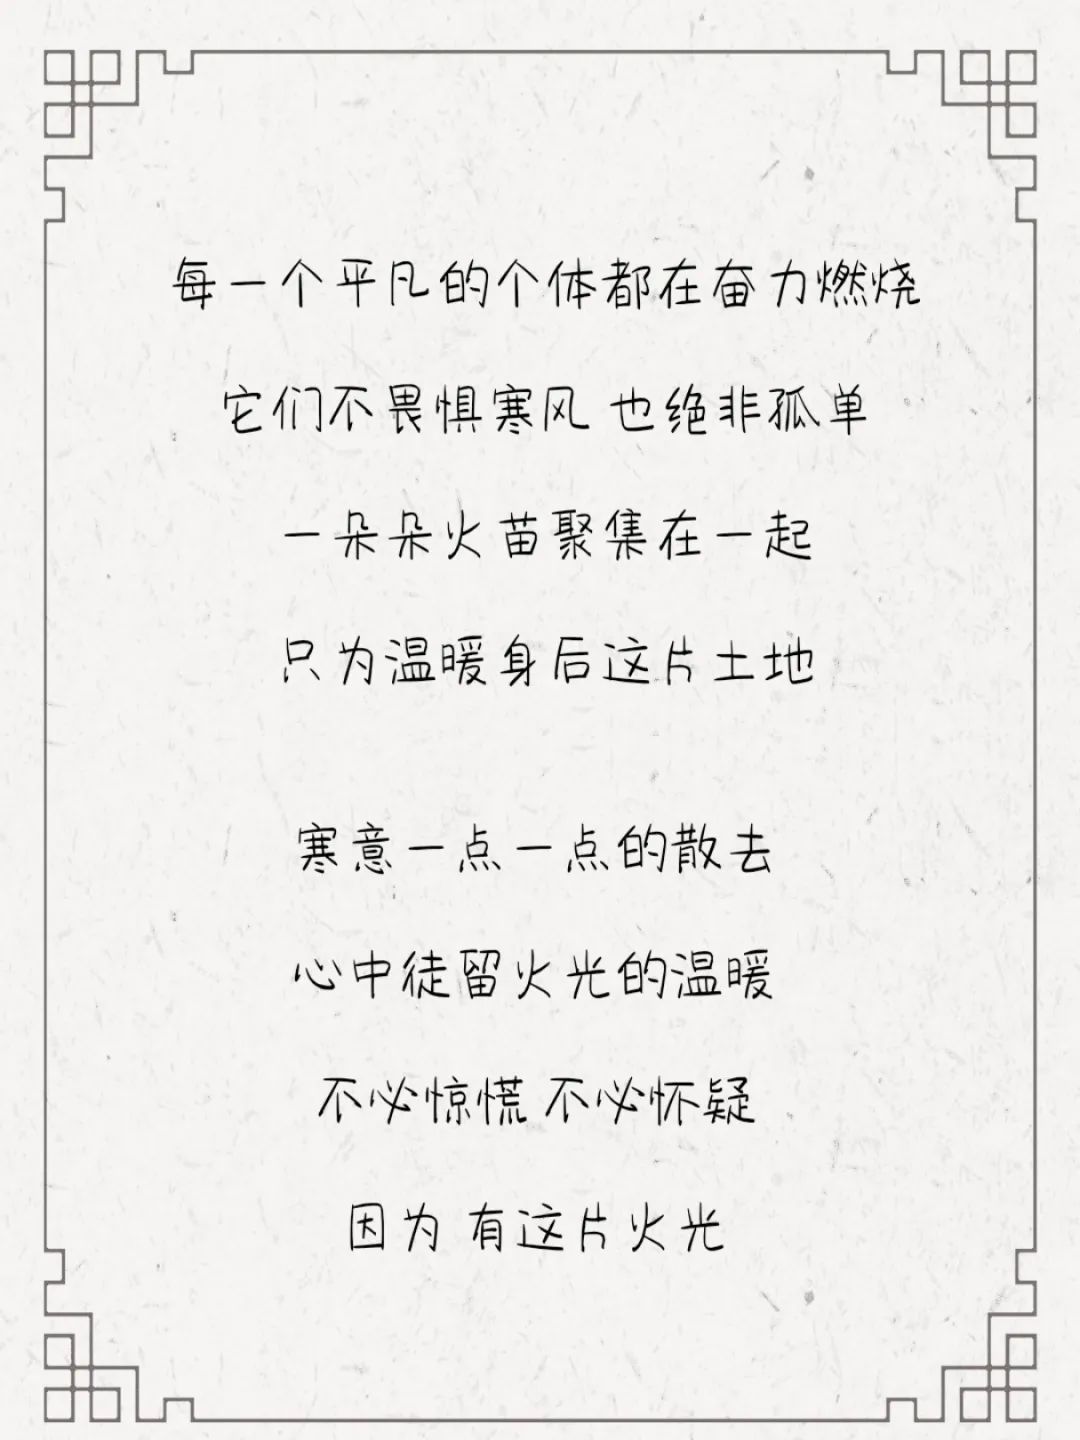 每一个平凡的个体都在奋力燃烧
它们不畏惧寒风 也绝非孤单
一朵朵火苗聚集在一起
只为温暖身后这片土地
寒意一点一点的散去
心中徒留火光的温暖
不必惊慌 不必怀疑
因为 有这片火光